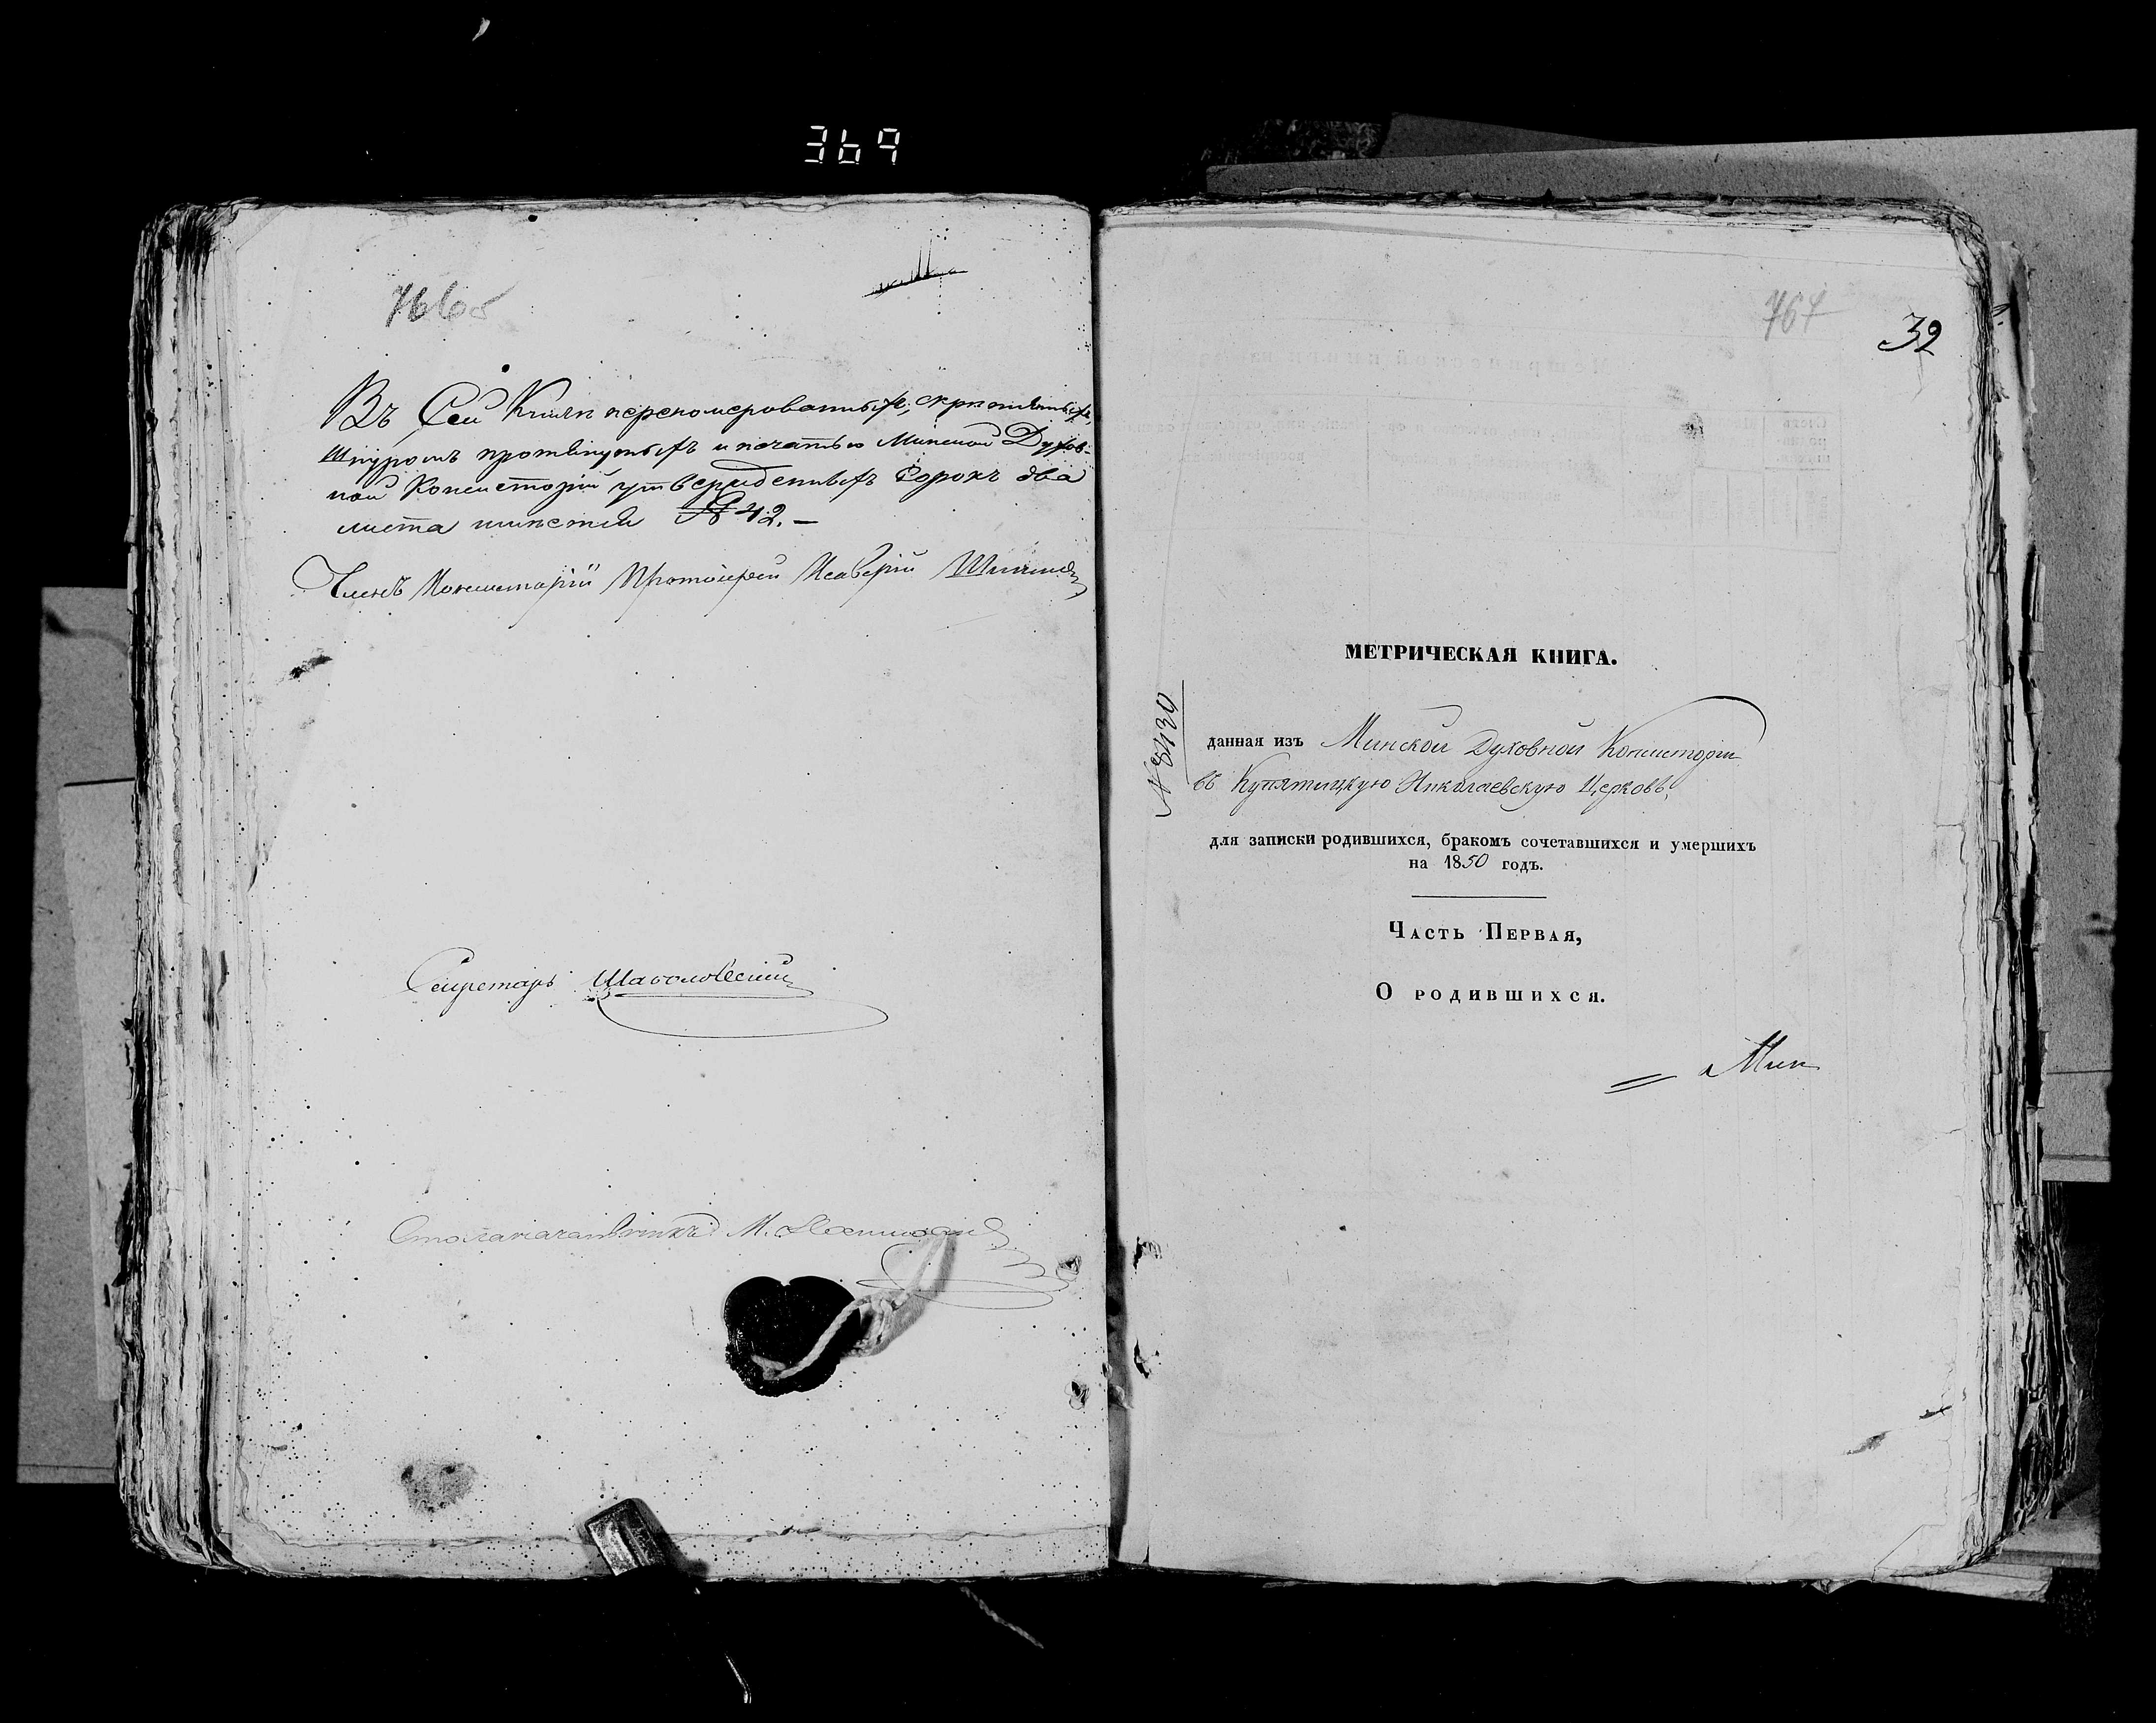 369
766об
Въ Сей Книгѣ перенумерованныхъ, скрѣпленныхъ,
Шнуромъ протянутыхъ и печатью Минской Духов-
ной Консисторіи утвержденныхъ Сорокъ два
листа шнетей № 42.
Членъ Консисторіи Протоіерей
Секретарь
Столоначальникъ М.
767
32
МЕТРИЧЕСКАЯ КНИГА.
№ 8430
данная изъ Минской Духовной Консисторіи
въ Купятицкую Николаевскую Церковь,
для записки родившихся, бракомъ сочетавшихся и умершихъ
на 1850 годъ.
Часть Первая,
О родившихся.
= Мин